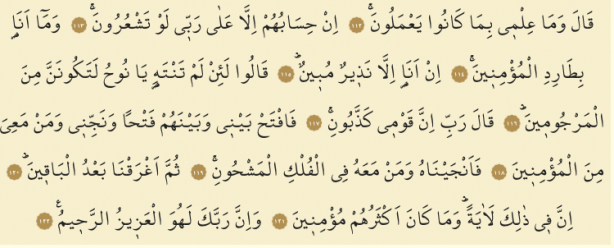 قَالَ وَمَا عِلْمٖي بِمَا كَانُوا يَعْمَلُونَۚ ﴿١١٢﴾ اِنْ حِسَابُهُمْ اِلَّا عَلٰى رَبّٖي لَوْ تَشْعُرُونَۚ ﴿١١٣﴾ وَمَٓا اَنَا۬
بِطَارِدِ الْمُؤْمِنٖينَۚ ﴿١١٤﴾ اِنْ اَنَا۬ اِلَّا نَذٖيرٌ مُبٖينٌۜ ﴿١١٥﴾ قَالُوا لَئِنْ لَمْ تَنْتَهِ يَا نُوحُ لَتَكُونَنَّ مِنَ
الْمَرْجُومٖينَۜ ﴿١١٦﴾ قَالَ رَبِّ اِنَّ قَوْمٖي كَذَّبُونِۚ ﴿١١٧﴾ فَافْتَحْ بَيْنٖي وَبَيْنَهُمْ فَتْحًا وَنَجِّنٖي وَمَنْ مَعِيَ
مِنَ الْمُؤْمِنٖينَ ﴿١١٨﴾ فَاَنْجَيْنَاهُ وَمَنْ مَعَهُ فِي الْفُلْكِ الْمَشْحُونِۚ ﴿١١٩﴾ ثُمَّ اَغْرَقْنَا بَعْدُ الْبَاقٖينَۜ ﴿١٢٠﴾
اِنَّ فٖي ذٰلِكَ لَاٰيَةًۜ وَمَا كَانَ اَكْثَرُهُمْ مُؤْمِنٖينَ ﴿١٢١﴾ وَاِنَّ رَبَّكَ لَهُوَ الْعَزٖيزُ الرَّحٖيمُ۟ ﴿١٢٢﴾